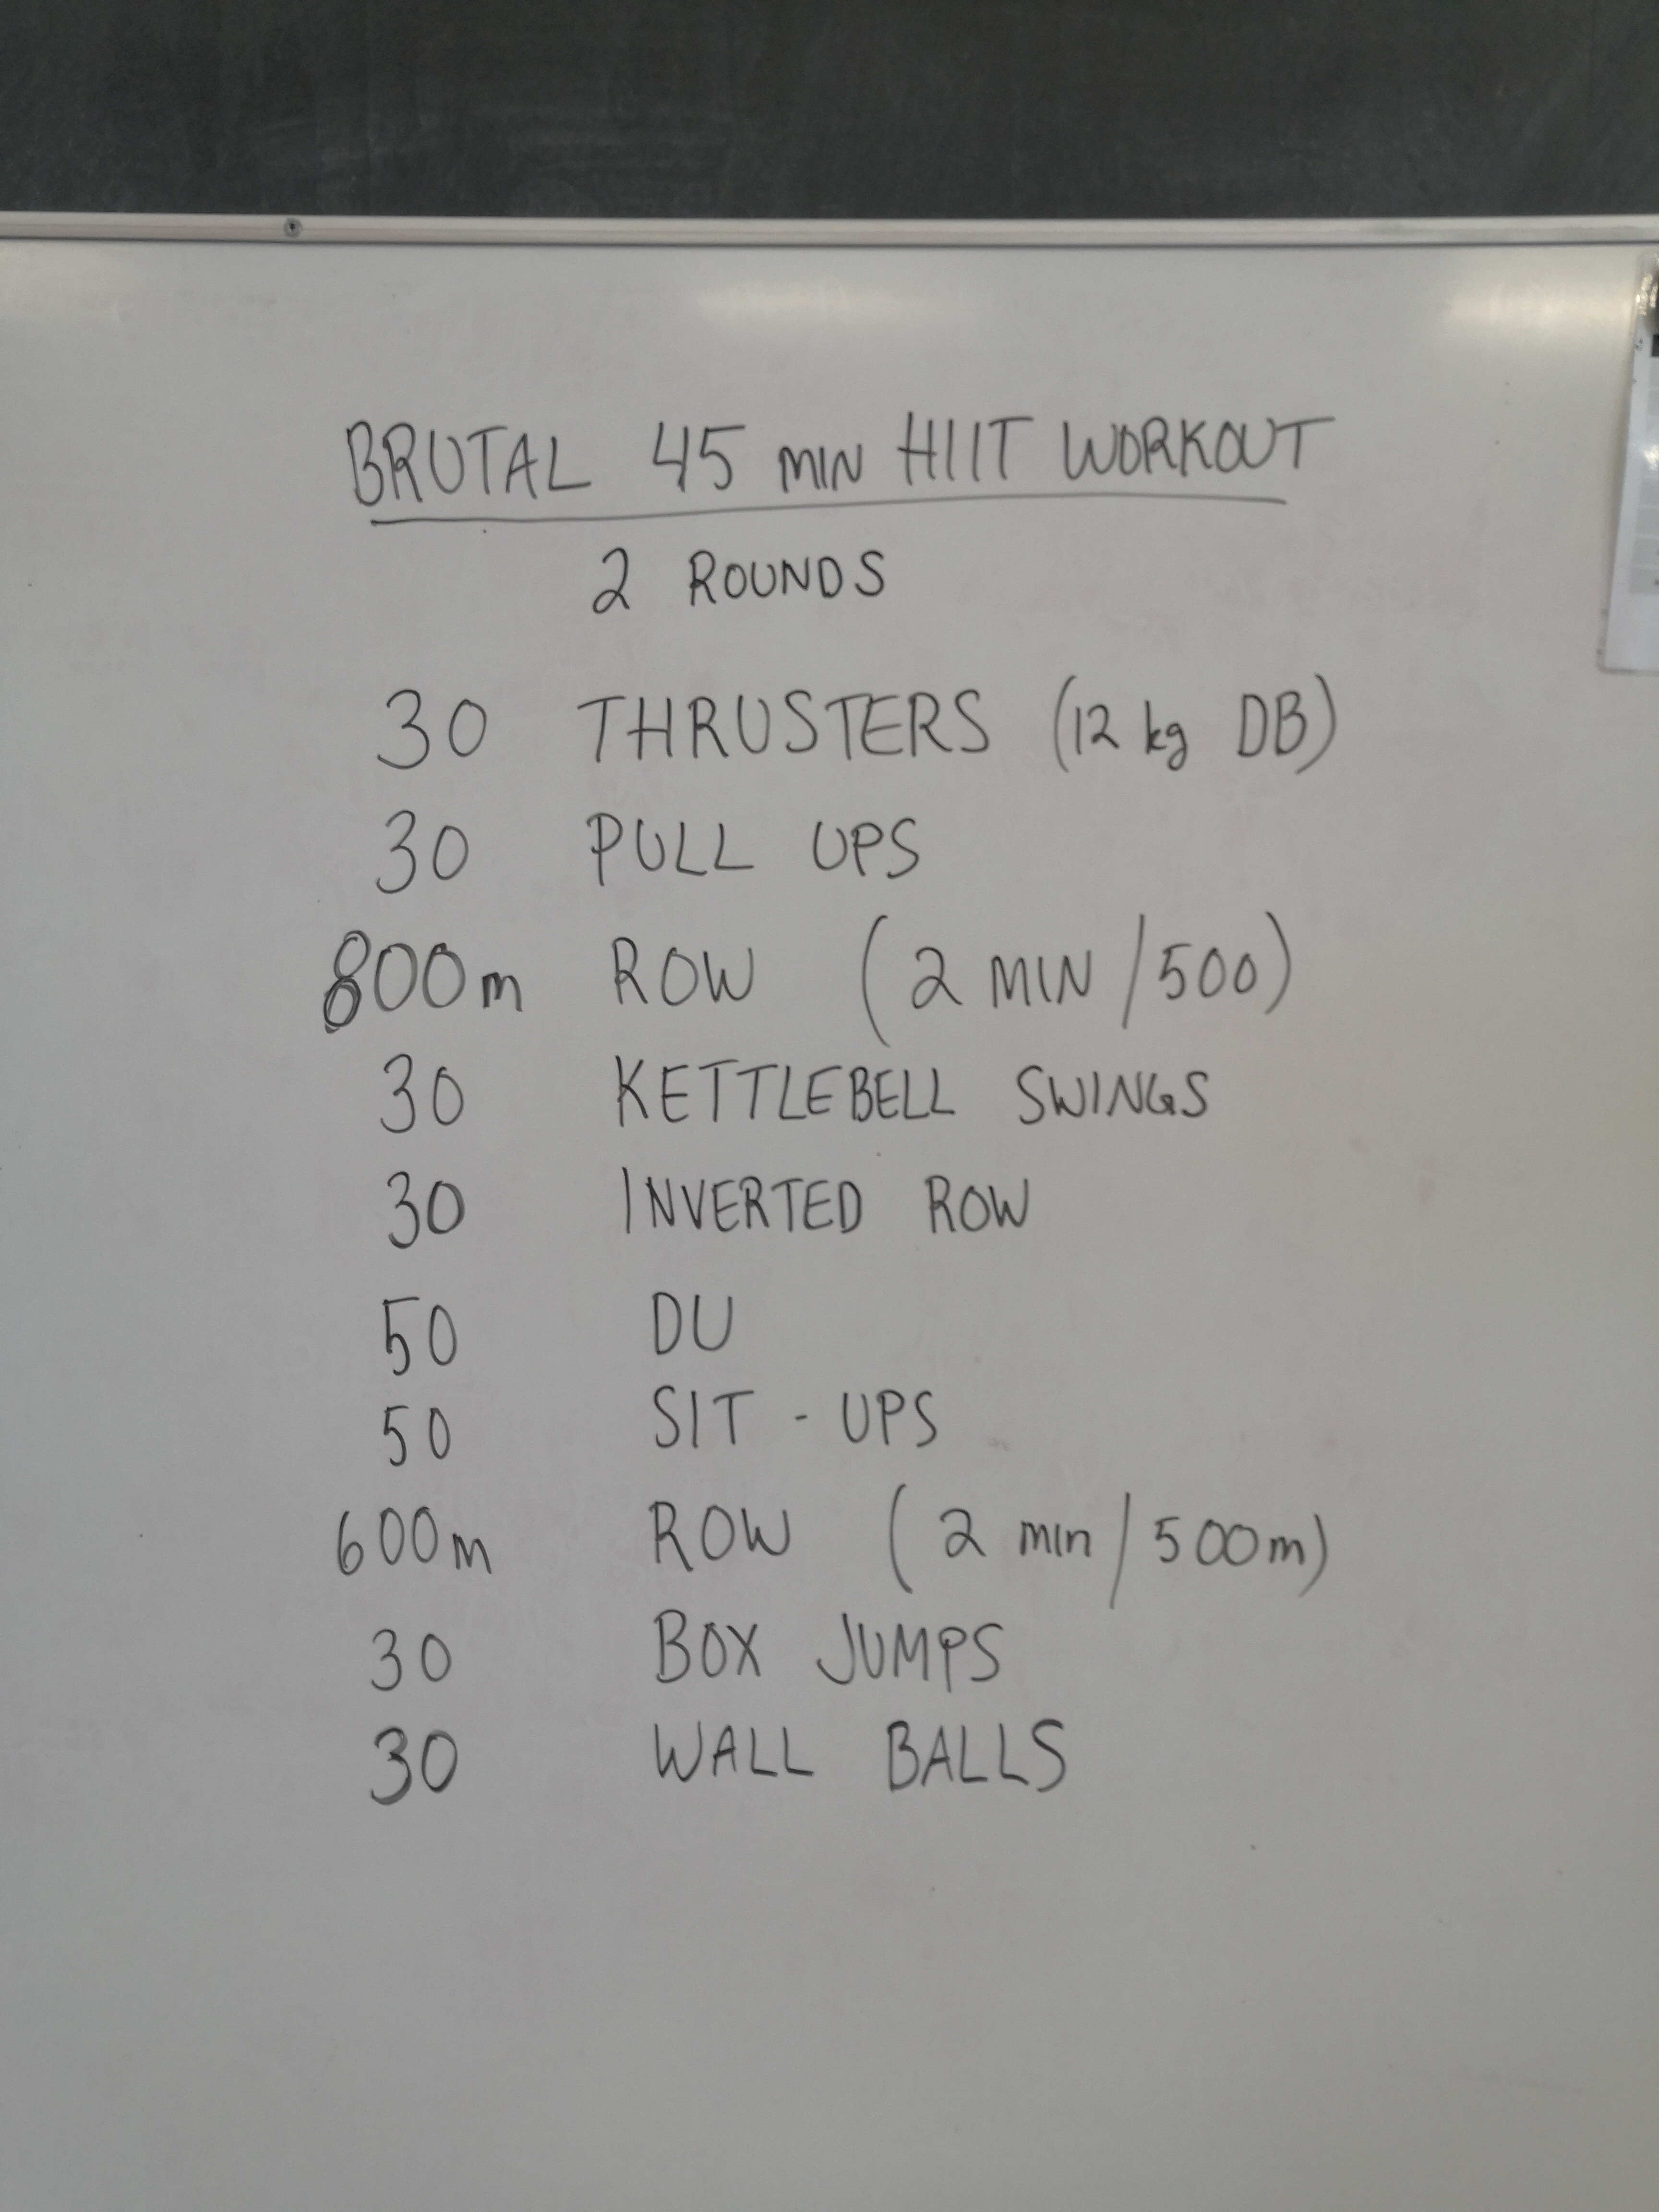 BRUTAL 45 MIN HIIT WORKOUT
2 ROUNDS
30 THRUSTERS (12 kg DB)
30 PULL UPS
800m ROW (2 MIN/500)
30 KETTLEBELL SWINGS
30 INVERTED ROW
50 DU
50 SIT-UPS
600m ROW (2 min/500m)
30 BOX JUMPS
30 WALL BALLS